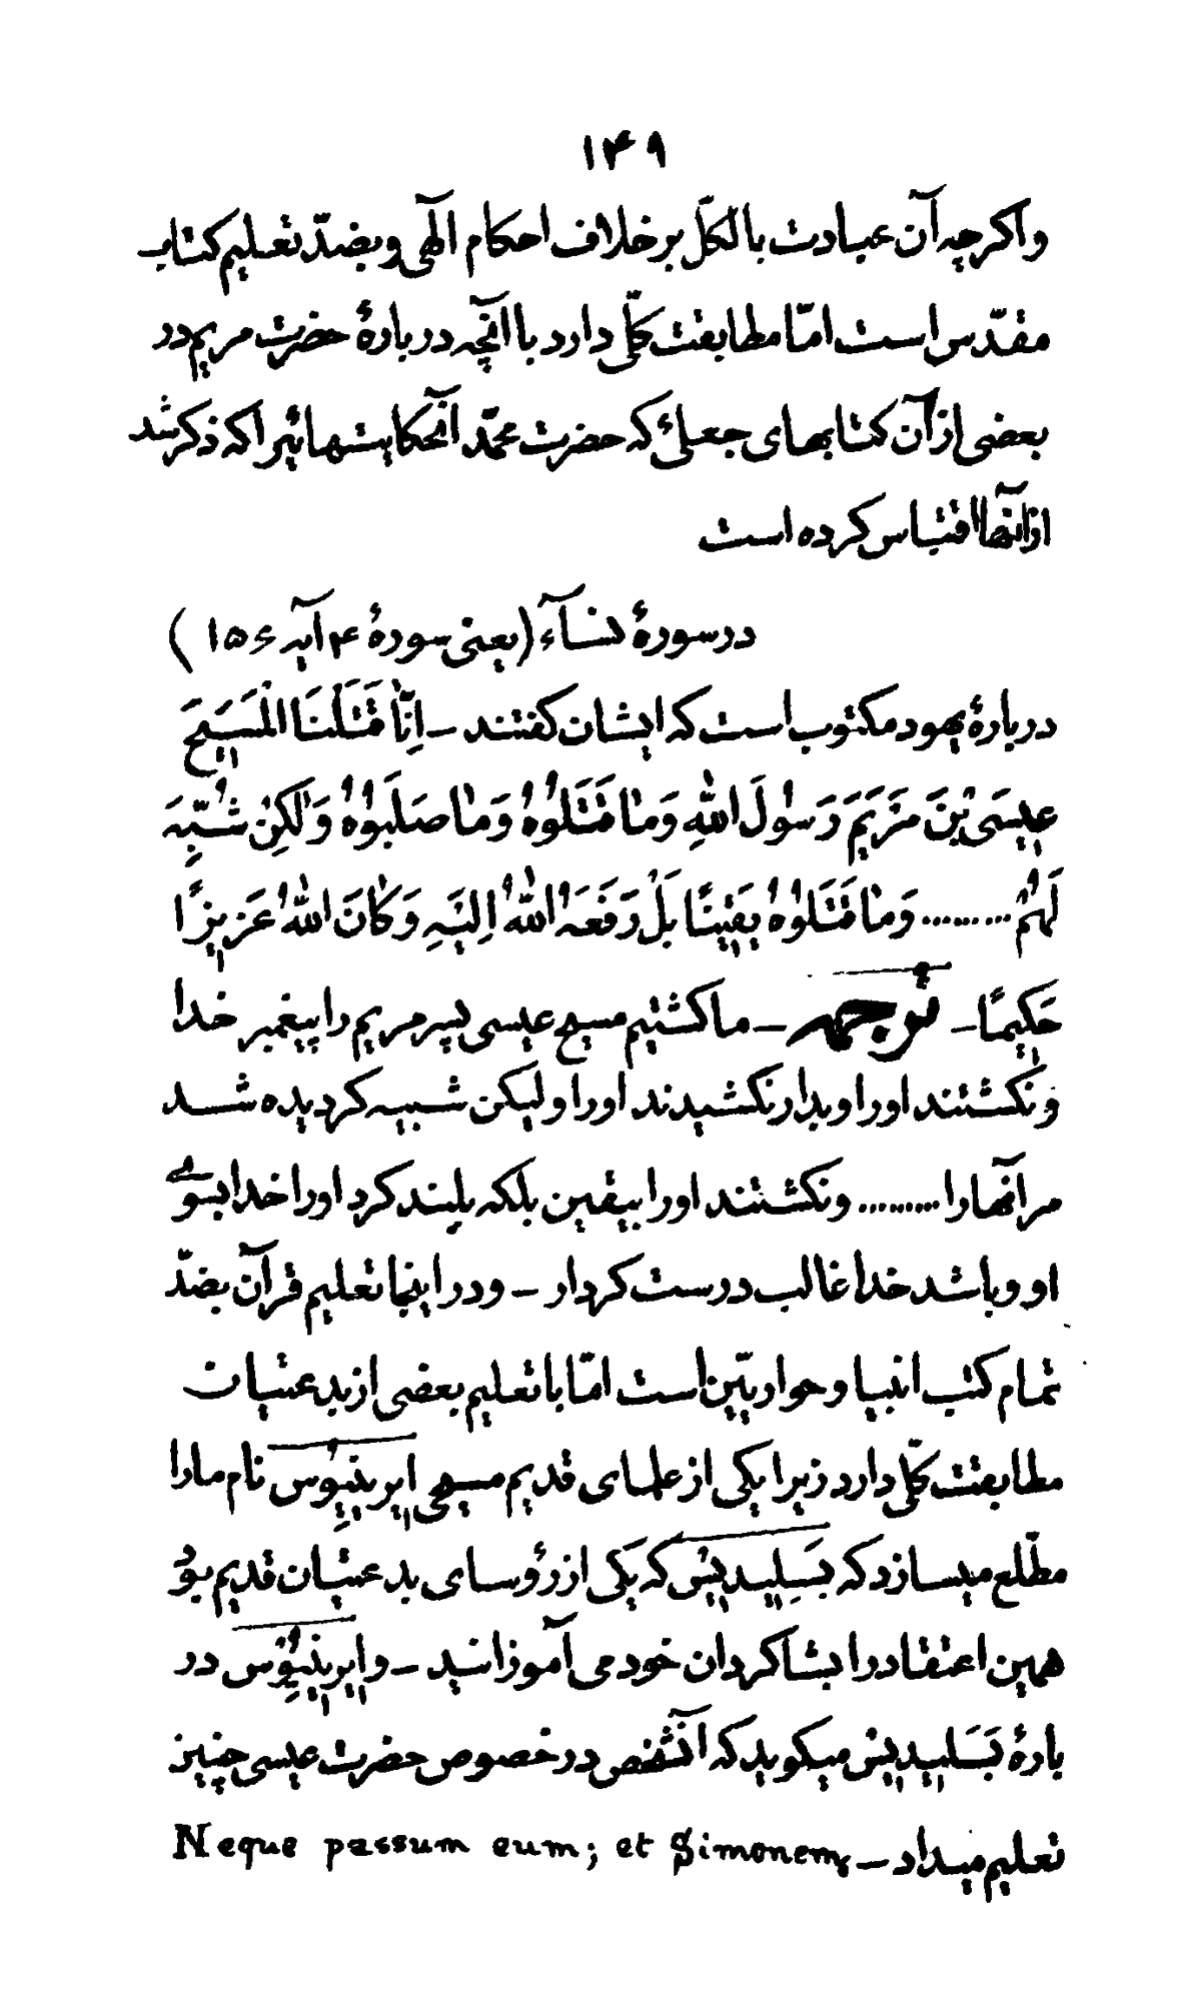 ۱۴۹
واکرچه آن عبادت بالکلّ بر خلاف احکام الٓهی و بضدّ تعلیم کتاب
مقدّس است امّا مطابقت کلّی دارد با آنچه در بارهٔ حضرت مریم در
بعضی از آن کتابهای جعلیٔ که حضرت محمّد آنحکایتهائیرا که ذکر شد
از آنها اقتباس کرده است
در سورهٔ نسآء (یعنی سورهٔ ۴ آیه ۱۵۶)
دربارهٔ یهود مکتوب است که ایشان کفتند ـ اِنّٰا قَتَلْنَا الْمَسِیحَ
عِیسَی بْنَ مَرْیَمَ رَسُولَ اللّٰهِ وَمٰا قَتَلُوْهُ وَمٰا صَلَبُوْهُ وَلٰکِنْ شُبِّهَ
لَهُمْ ........ وَمٰا قَتَلُوْهُ یَقِیْنًا بَلْ رَفَعَهُ اللّٰهُ اِلَیْهِ وَکٰانَ اللّٰهُ عَزِیزًا
حَکِیمًا ـ ترجمه ـ ما کشتیم مسیح عیسی پسر مریم را پیغمبر خدا
و نکشتند اورا و بدار نکشیدند اورا و لیکن شبیه کردیده شد
مر آنهارا ........ و نکشتند اورا بیقین بلکه بلند کرد اورا خدا بسوی
او و باشد خدا غالب درست کردار ـ و در اینجا تعلیم قرآن بضدّ
تمام کتب انبیا و حواریّین است امّا با تعلیم بعضی از بدعتیان
مطابقت کلّی دارد زیرا یکی از علمای قدیم مسیحی ایرینیوُس نام مارا
مطّلع میسازد که بَسِلِیدیِس که یکی از رؤسای بدعتیان قدیم بود
همین اعتقاد را بشاکردان خود می آموزانید ـ و ایرینیوُس در
بارهٔ بَسَلِیدیِس میکوید که آنشخص در خصوص حضرت عیسی چنین
تعلیم میداد ـ Neque passum eum; et Simonem